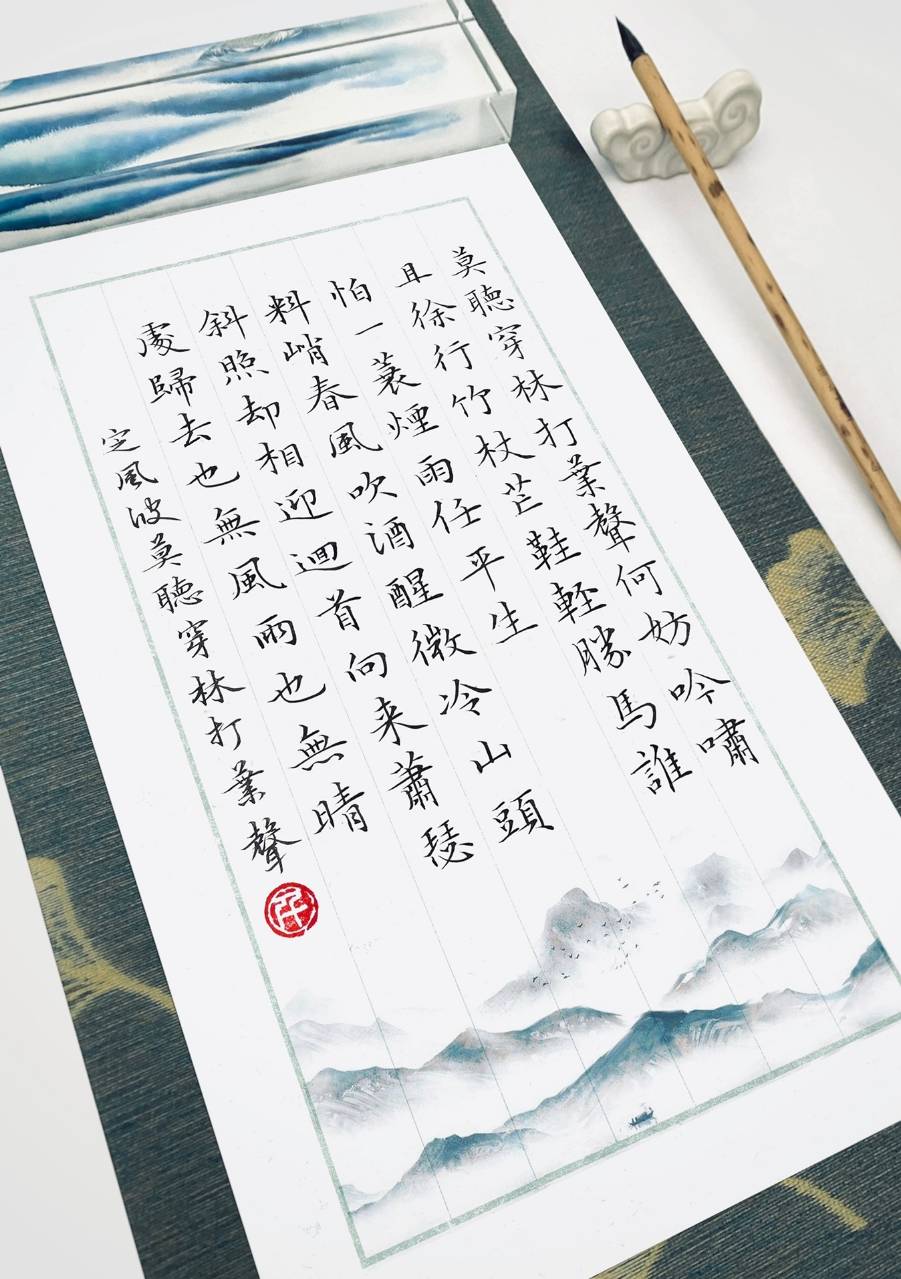 莫聽穿林打葉聲何妨吟嘯
且徐行竹杖芒鞋軽勝馬誰
怕一蓑煙雨任平生
料峭春風吹酒醒微冷山頭
斜照却相迎迴首向来蕭瑟
處歸去也無風雨也無晴
定風波莫聽穿林打葉聲